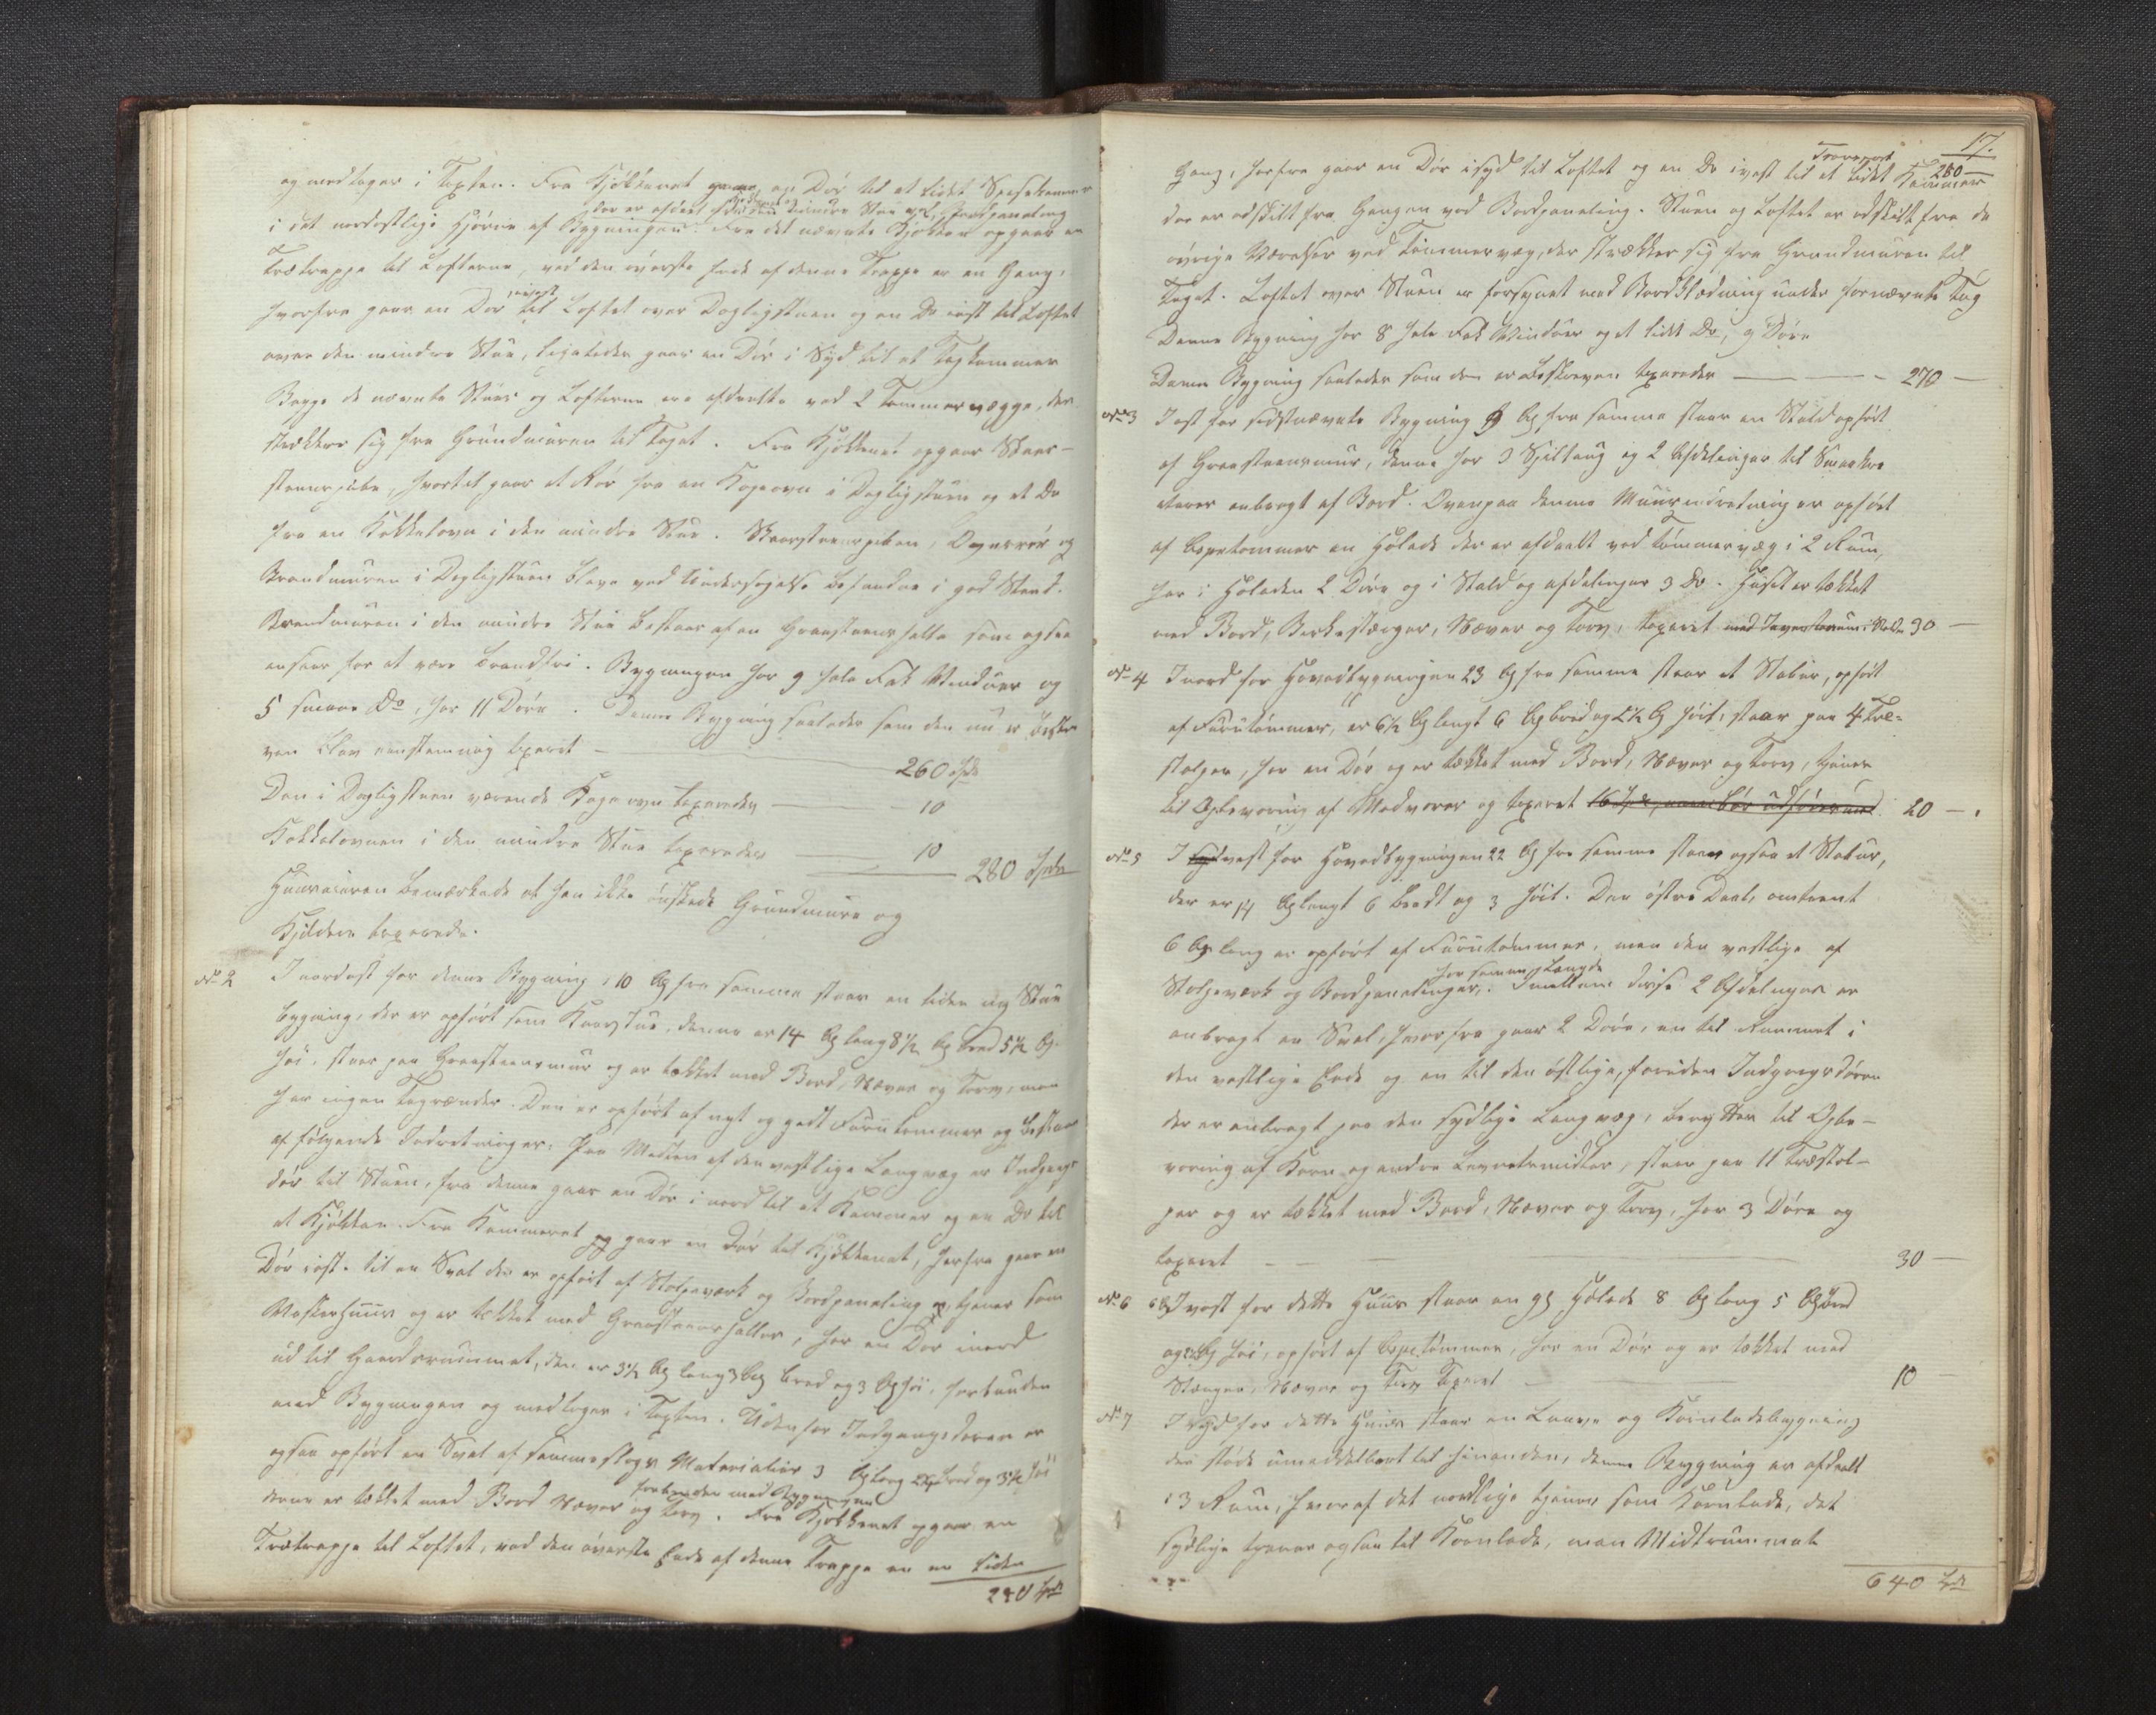 og medtages i Taxten. Fra Kjøkkenet gaar en Dør til et lidet Spisekammer
der er afdeelt fra den mindre Stue ved Bordpaneling
i det nordostlige Hjørne af Bygningen. Fra det nævnte Kjøkken opgaar en
Trætrappe til Lofterne, ved den øverste Ende af denne Trappe er en Gang,
hvorfra gaar en Dør i vest til Loftet over Dagligstuen og en Do i øst til Loftet
over den mindre Stue, ligeledes gaar en Dør i Syd til et Tagkammer
Begge de nævnte Stuer og Lofterne ere afdeelte ved 2 Tømmervægge, der
strækker sig fra Grundmuren til Taget. Fra Kjøkkenet opgaar Skor-
steenspibe, hvortil gaar et Rør fra en Kogeovn i Dagligstuen og et Do
fra en Kakkelovn i den mindre Stue. Skorsteenspiben, Ovnsrør og
Brandmuren i Dagligstuen bleve ved Undersøgelse befunden i god Stand.
Brandmuren i den mindre Stue bestaar af en Graasteenshelle som ogsaa
ansees for at være brandfri. Bygningen har 9 hele Fak Vinduer og
5 smaae Do, har 11 Døre. Denne Bygning saaledes som den nu er beskre-
ven blev eenstemmig taxeret 260 Spd
Den i Dagligstuen værende Kogeovn taxeredes 10
Kakkelovnen i den mindre Stue taxeredes 10
280 Spd
Huuseieren bemærkede at han ikke ønskede Grundmure og
Kjeldere taxerede.
No 2 I nordost for denne Bygning, 10 Al fra samme staar en liden ny Stue
bygning, der er opført som Kaarstue, denne er 14 Al lang 8½ Al bred 5½ Al
høi, staar paa Graasteensmur og er tækket med Bord, Næver og Torv, men
har ingen Tagrænder. Den er opført af nyt og godt Furutømmer og bestaar
af følgende Indretninger: Paa Midten af den vestlige Langvæg er Indgangs
dør til Stuen, fra denne gaar en Dør i nord til et Kammer og en Do til
et Kjøkken. Fra Kammeret gaar en Dør til Kjøkkenet, herfra gaar en
Dør i øst til en Sval der er opført af Stolpeværk og Bordpaneling og tjener som
Vaskerhuus og er tækket med Graasteensheller, har en Dør i nord
ud til Gaardsrummet, den er 3½ Al lang 3 Al bred og 3 Al høi, forbunden
med Bygningen og medtages i Taxten. Udenfor Indgangsdøren er
ogsaa opført en Sval af samme slags Materialier 3 Al lang 2 Al bred og 3½ høi
forbunden med Bygningen
denne er tækket med Bord Næver og Torv. Fra Kjøkkenet opgaar en
Trætrappe til Loftet, ved den øverste Ende af denne Trappe er en liden
280 Spd
17.
Transport 280
Gang, herfra gaar en Dør i syd til Loftet og en Do i vest til et lidet Kammer
der er adskilt fra Gangen ved Bordpaneling. Stuen og Loftet er adskilt fra de
øvrige Værelser ved Tømmervæg, der strækker sig fra Grundmuren til
Taget. Loftet over Stuen er forsynet med Bordklædning under fornævnte Tag
Denne Bygning har 8 hele Fak Vinduer og et lidet Do, 9 Døre
Denne Bygning saaledes som den er beskreven taxeredes 270
No 3 I øst for sidstnævnte Bygning 9 Al fra samme staar en Stald opført
af Graasteensmur, denne har 3 Spiltaug og 2 Afdelinger til Smaakre
aturer anbragt af Bord. Ovenpaa denne Muurindretning er opført
af Aspetømmer en Høelade der er afdeelt ved Tømmervæg i 2 Rum,
har i Høeladen 2 Døre og i Stald og afdelinger 3 Do. Huset er tækket
med Bord, Birkestænger, Næver og Torv, taxeret 30
No 4 I nord for Hovedbygningen 23 Al fra samme staar et Stabur, opført
af Furutømmer, er 6½ Al langt 6 Al bred og 4½ Al høit, staar paa 4 Træ-
stolper, har en Dør og er tækket med Bord, Næver og Torv, tjener
til Opbevaring af Madvarer og taxeret 20
No 5 I vest for Hovedbygningen 22 Al fra samme staar ogsaa et Stabur,
der er 14 Al langt 6 bredt og 3 høit. Den østre Deel, omtrent
6 Al lang er opført af Furutømmer, men den vestlige af
har samme Længde
Stolpeværk og Bordpanelinger. Imellem disse 2 Afdelinger er
anbragt en Sval, hvorfra gaar 2 Døre, en til Rummet i
den vestlige Ende og en til den østlige, foruden Indgangsdøren
der er anbragt paa den sydlige Langvæg, benyttes til Opbe-
varing af Korn og andre Levnetsmidler, staar paa 11 Træstol-
per og er tækket med Bord, Næver og Torv, har 3 Døre og
taxeret 30
No 6 I vest for dette Huus staar en Høelade 8 Al lang 5 Al bred
og Al høi, opført af Aspetømmer, har en Dør og er tækket med
Stænger, Næver og Torv taxeret 10
No 7 I Syd for dette Huus staar en Laave og Kornladebygning
der støde umiddelbart til hinanden, denne Bygning er afdeelt
i 3 Rum, hvoraf det nordlige tjener som Kornlade, det
sydlige tjener ogsaa til Kornlade, men Midtrummet
640 Spd